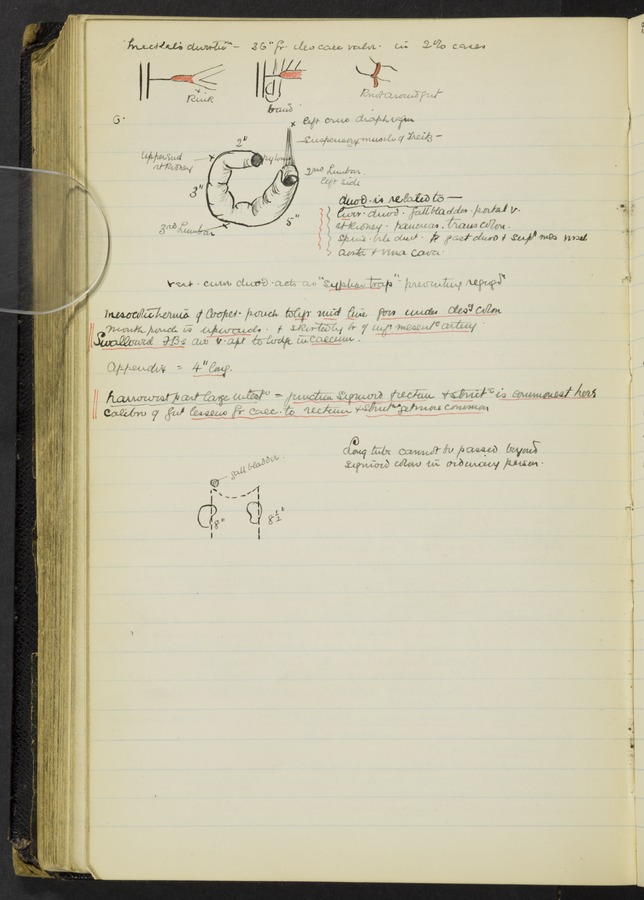 Meckel's divertm – 36" fr. ileo caec valv. in 2% cases
Kink
band
Knot around gut
6.
left crus diaphragm
Suspensory muscle of Treitz –
2"
Upper end
rt Kidney
pylorus
2nd Lumbar
left side
3"
5"
3rd Lumbar
duod. is related to –
liver. duod. gallbladder. portal v.
rt Kidney. pancreas. trans colon.
bile duct. gast duod + supr mes vessel
aorta + vena cava.
vert. curve duod. acts as "syphon trap" preventing regurgn
mesocolic hernia of Cooper. pouch to left mid line goes under desg colon
mouth pouch is upwards. + skirted by br of infr mesentc artery.
Swallowed FBs are v. apt to lodge in caecum.
Appendix = 4" long.
narrowest part large intest = junction sigmoid & rectum + strictre is commonest here
calibre of gut lessens fr caec. to rectum + strictre get more common
Long tube cannot be passed beyond
sigmoid colon in ordinary person.
gall bladder.
8"
8½"